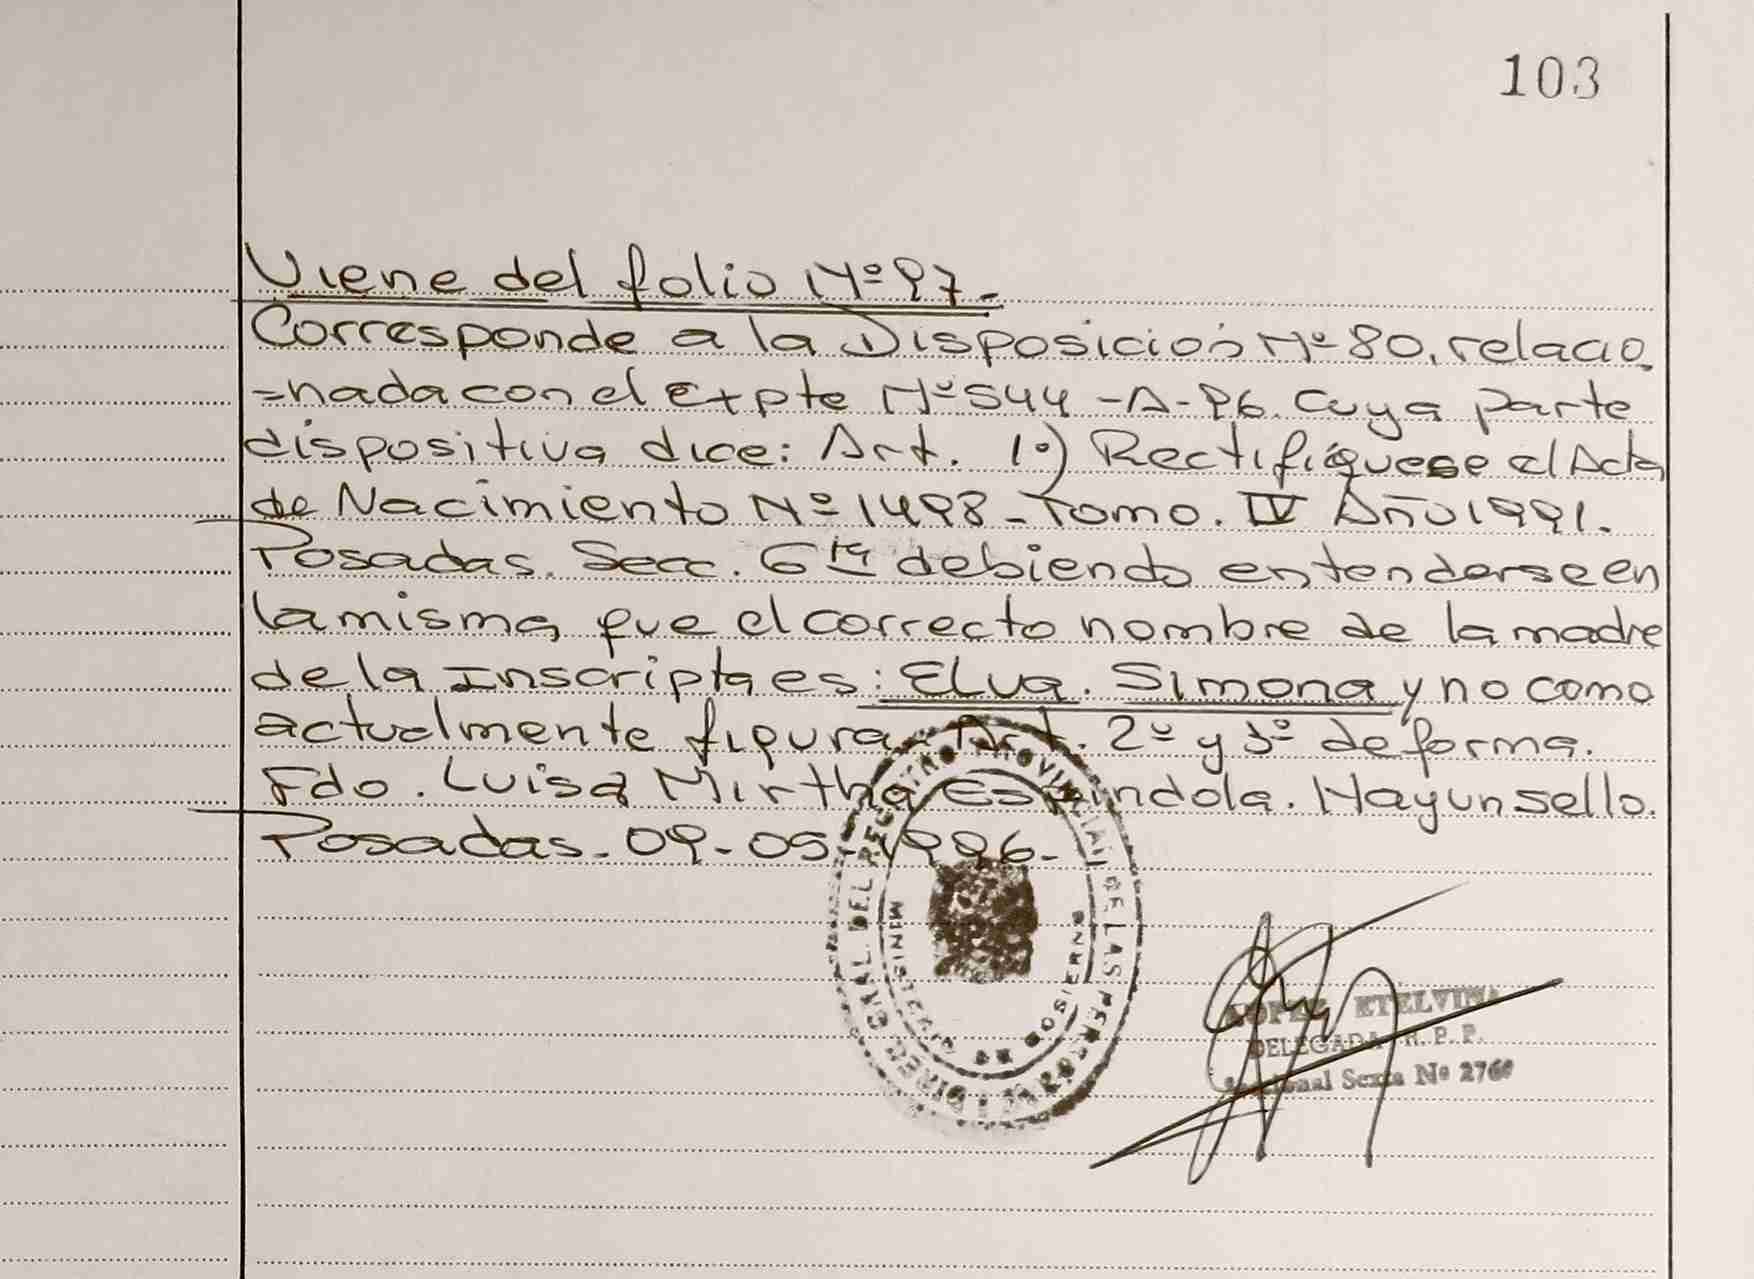 103
Viene del folio Nº 97-
Corresponde a la Disposición Nº 80, relacio
=nada con el Expte Nº 544-A-96. Cuya parte
dispositiva dice: Art. 1º) Rectifíquese el Acta
de Nacimiento Nº 1498-Tomo. IV Año 1991.
Posadas. Secc. 6ta debiendo entenderse en
la misma que el correcto nombre de la madre
de la Inscripta es: Elva. Simona y no como
actualmente figura. Art. 2º y 3º de forma.
Fdo. Luisa Mirtha Espíndola. Hay un sello.
Posadas. 09-05-1996-
DIREC. GRAL. DEL REGISTRO PROVINCIAL DE LAS PERSONAS
DE GOBIERNO
LOPEZ ETELVINA
DELEGADA R. P. P.
Seccional Sexta Nº 2760